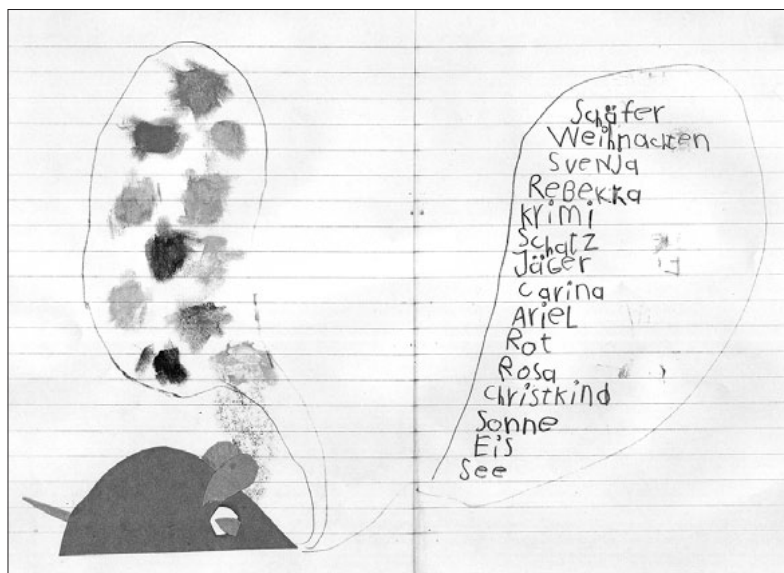 Schäfer
Weihnachten
SvenJa
ReBekka
Krimi
Schatz
JäGer
carina
AriEL
Rot
Rosa
christkind
Sonne
Eis
See